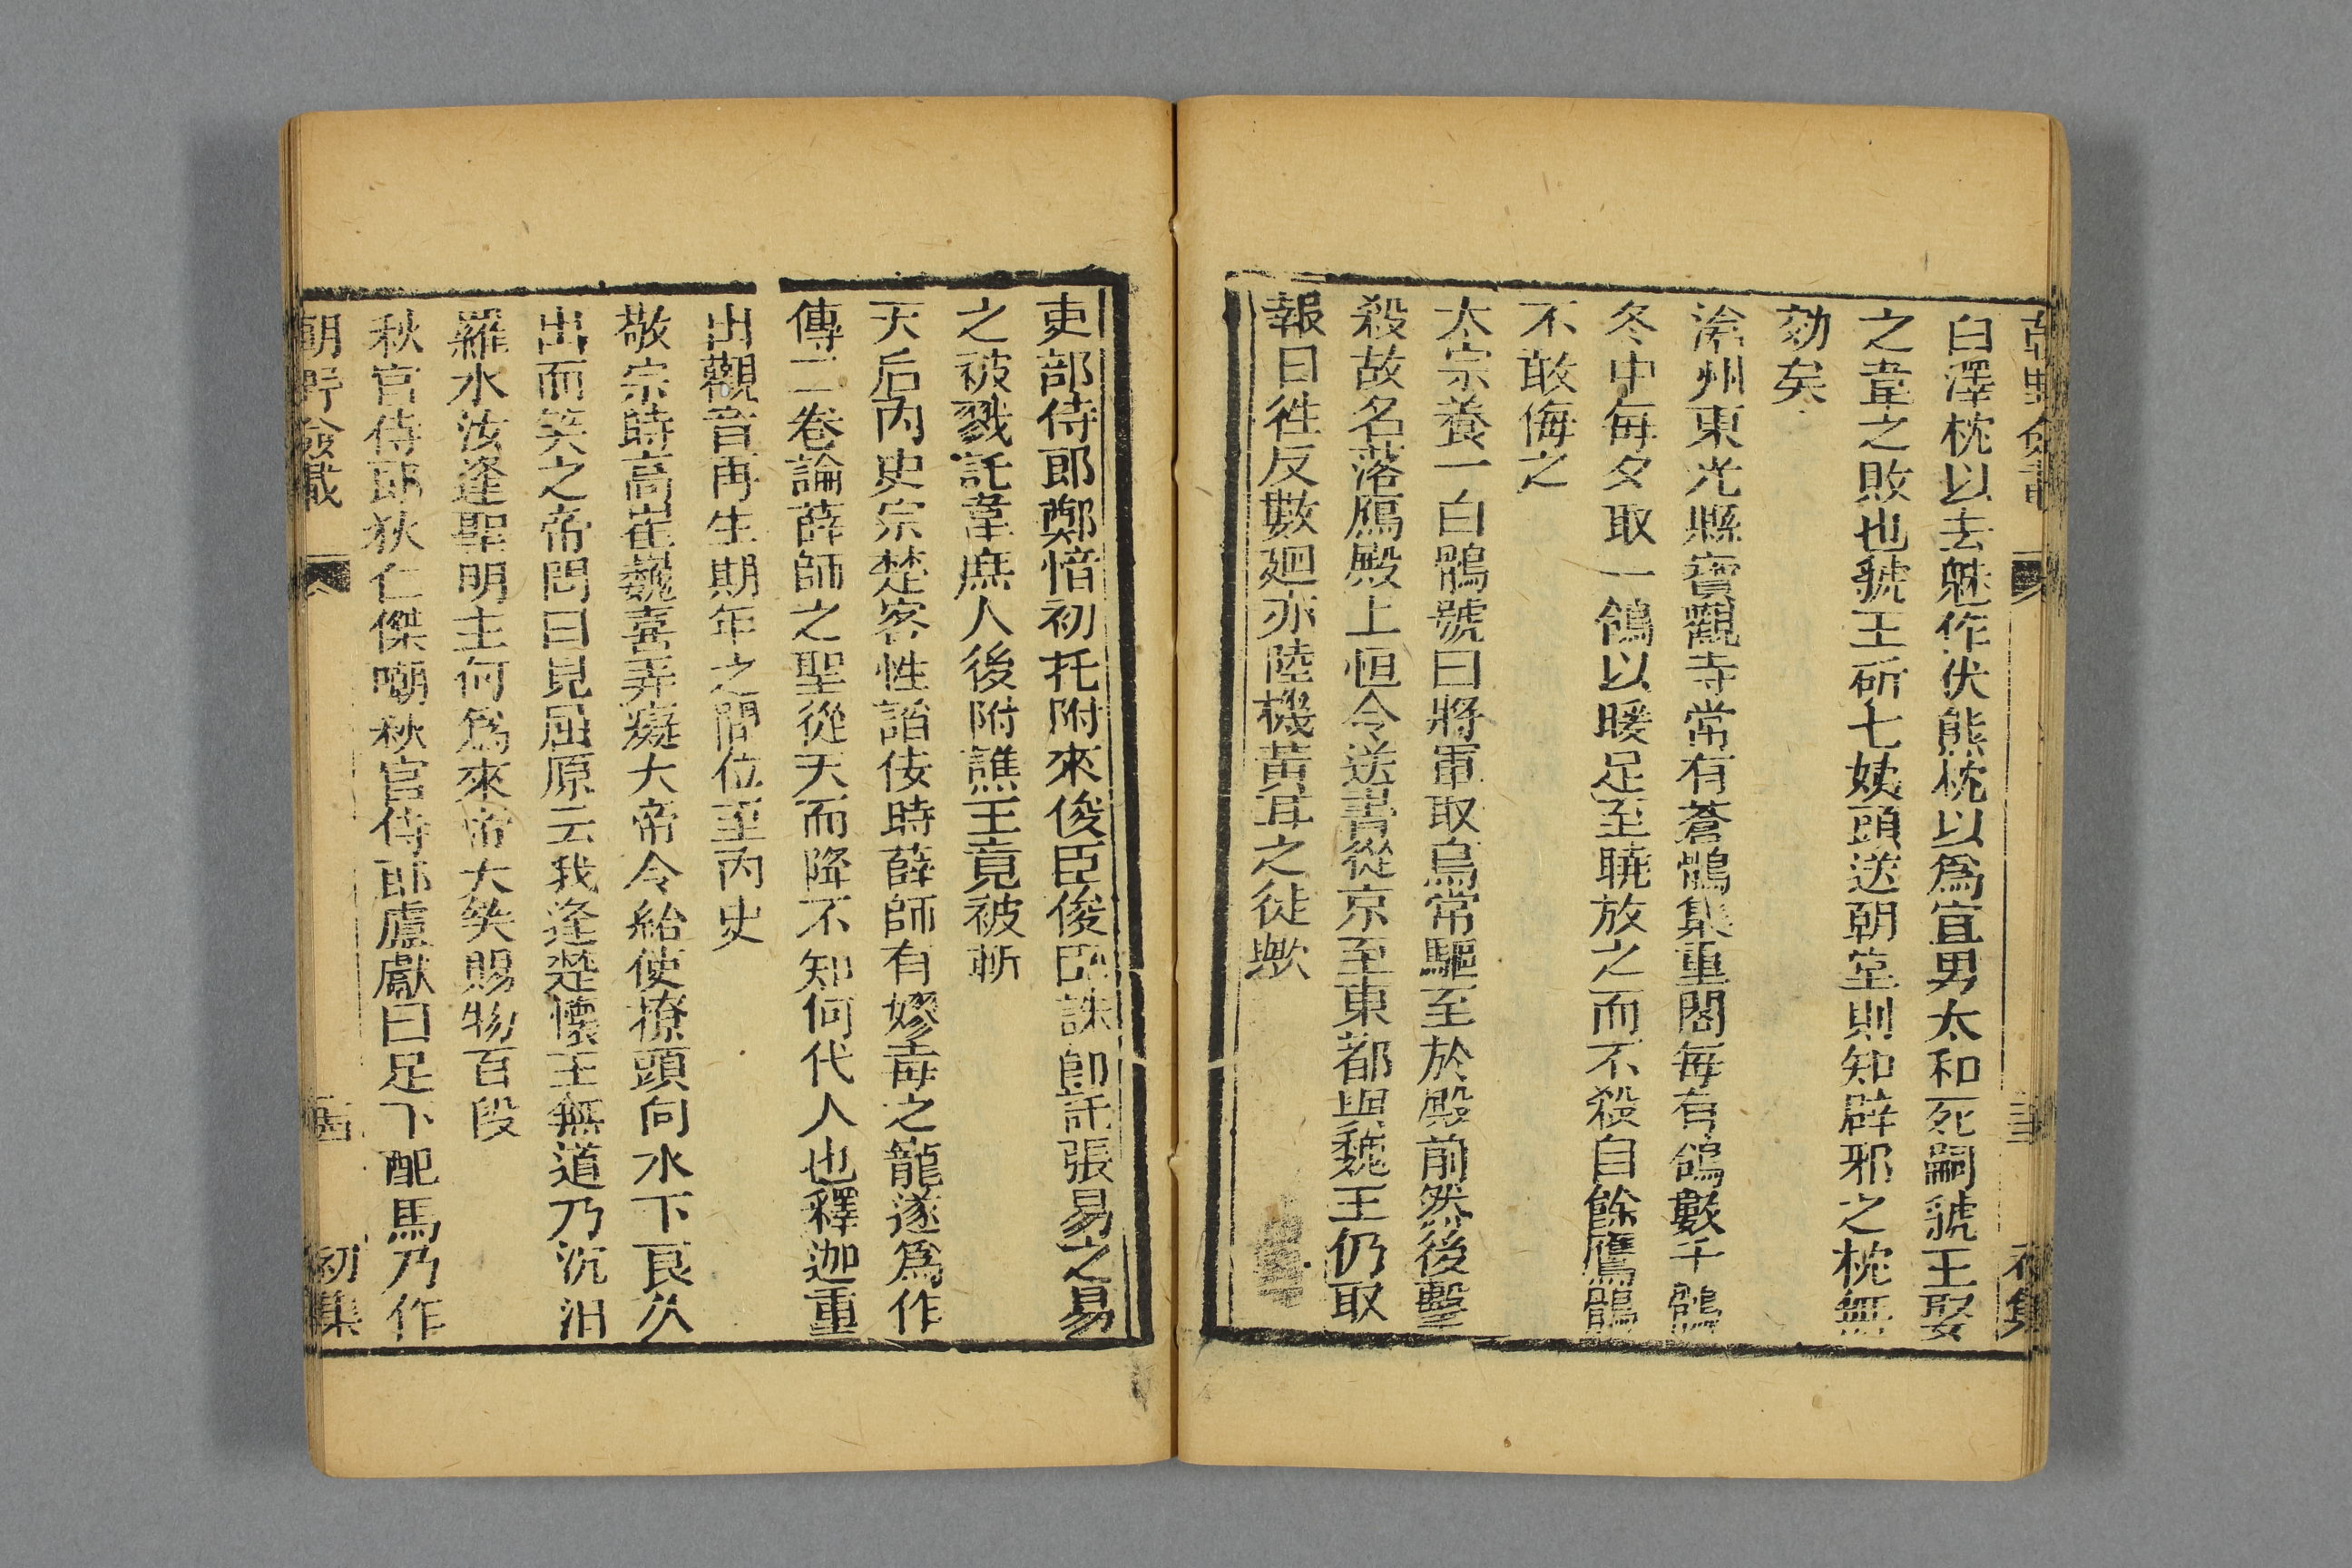 白澤枕以去魅作伏熊枕以爲宜男太和死嗣虢王娶
之韋之敗也虢王斫七姨頭送朝堂則知辟邪之枕無
効矣
滄州東光縣寶觀寺常有蒼鶻集重閣每有鴿數千鶻
冬中每夕取一鴿以暖足至曉放之而不殺自餘鷹鶻
不敢侮之
太宗養一白鶻號曰將軍取鳥常驅至於殿前然後擊
殺故名落鴈殿上恒令送書從京至東都與魏王仍取
報日徃反數廻亦陸機黃耳之徒歟
吏部侍郎鄭愔初托附來俊臣俊臣誅卽託張易之易
之被戮託韋庶人後附譙王竟被斬
天后內史宗楚客性諂佞時薛師有嫪毐之寵遂爲作
傳二卷論薛師之聖從天而降不知何代人也釋迦重
出觀音再生期年之間位至內史
敬宗時高崔巍喜弄癡大帝令給使撩頭向水下良久
出而笑之帝問曰見屈原云我逢楚懷王無道乃沉汨
羅水汝逢聖明主何爲來帝大笑賜物百段
秋官侍郎狄仁傑嘲秋官侍郎盧獻曰足下配馬乃作
朝野僉載
初集